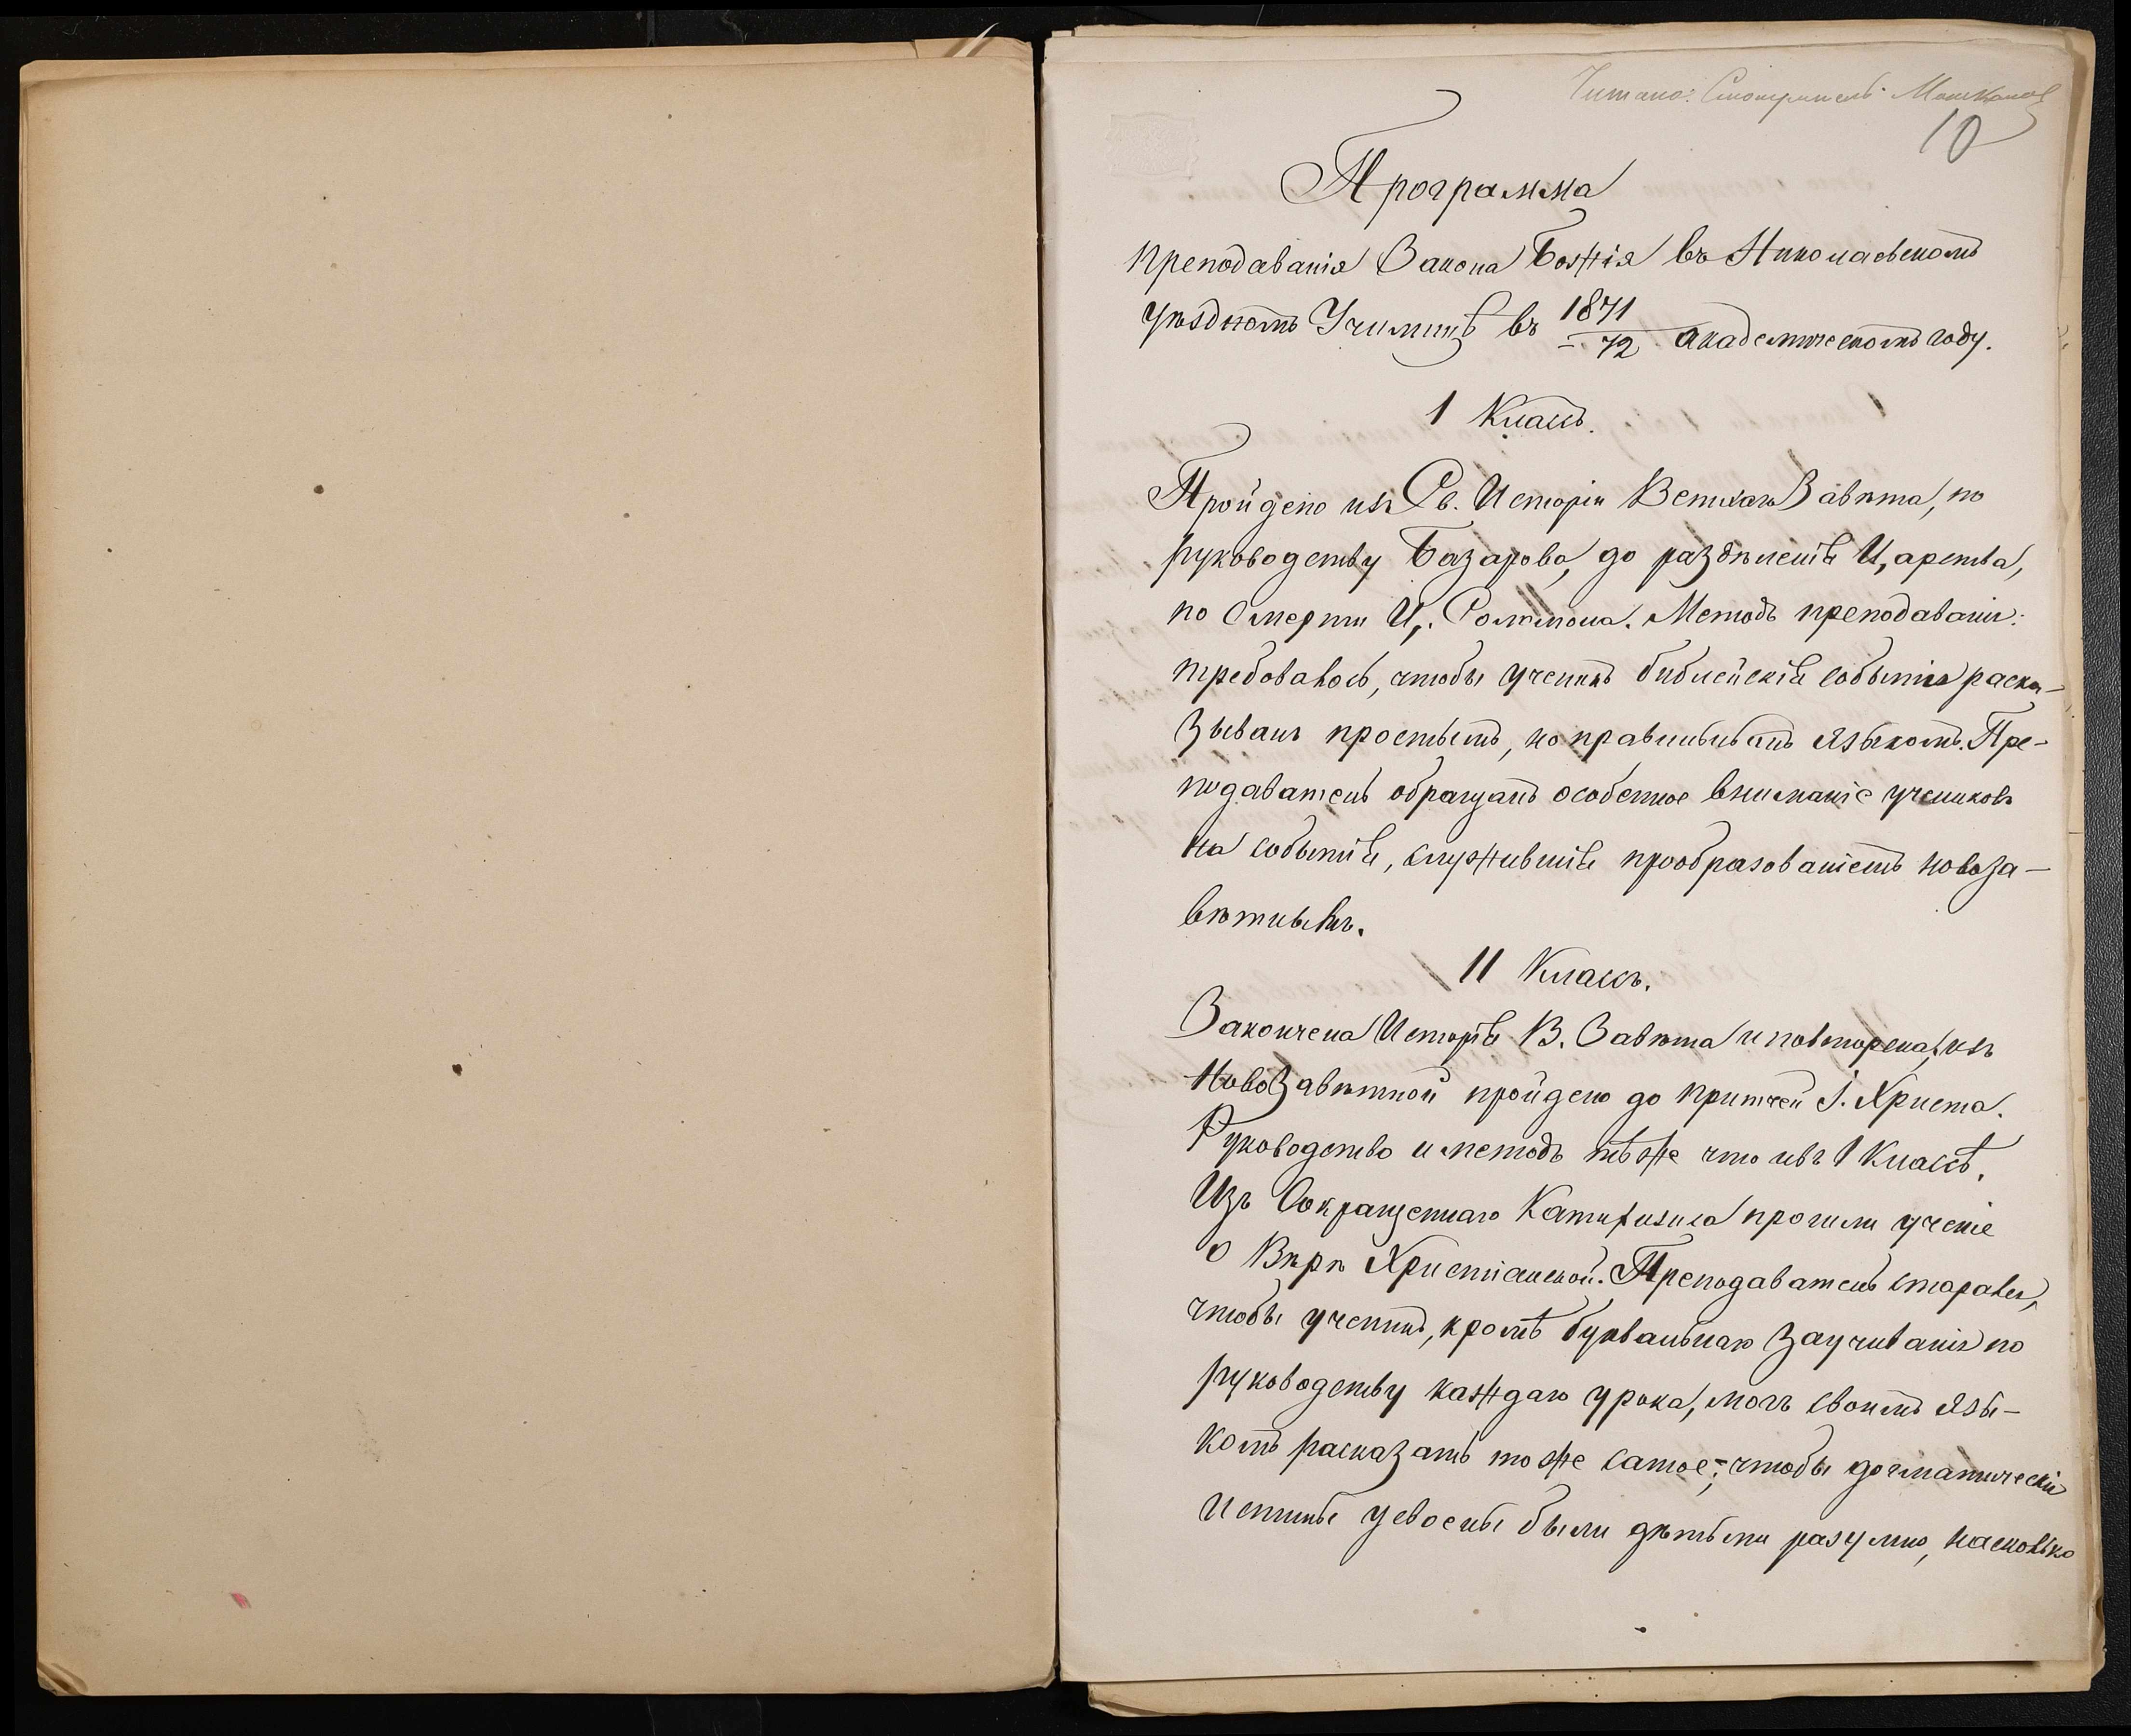 Читано: Смотритель
10
Программа
преподаванія Закона Божія въ Николаевскомъ
уѣздномъ Училищѣ въ 1871/72 Академическомъ году.
1 Классъ.
Пройдено изъ Св. Исторіи Ветхаго Завѣта, по
руководству Базарова, до раздѣленія Царства,
по смерти Ц. Соломона. Методъ преподаванія:
требовалось, чтобы ученикъ библейскія событія раска-
зывалъ простымъ, но правильнымъ языкомъ. Пре-
подаватель обращалъ особенное вниманіе учениковъ
на событія, служившія прообразованіемъ новоза-
вѣтныхъ.
II Классъ.
Закончена Исторія В. Завѣта и повторена, изъ
Новозавѣтной пройдено до притчей І. Христа.
Руководство и методъ тѣ же что и въ 1 Классѣ.
Изъ Сокращеннаго Катихизиса прошли ученіе
о Вѣрѣ Христіанской. Преподаватель старался,
чтобы ученикъ, кромѣ буквальнаго заучиванія по
руководству каждаго урока, могъ своимъ язы-
комъ расказать то же самое; чтобы догматическія
истины усвоены были дѣтьми разумно, насколько